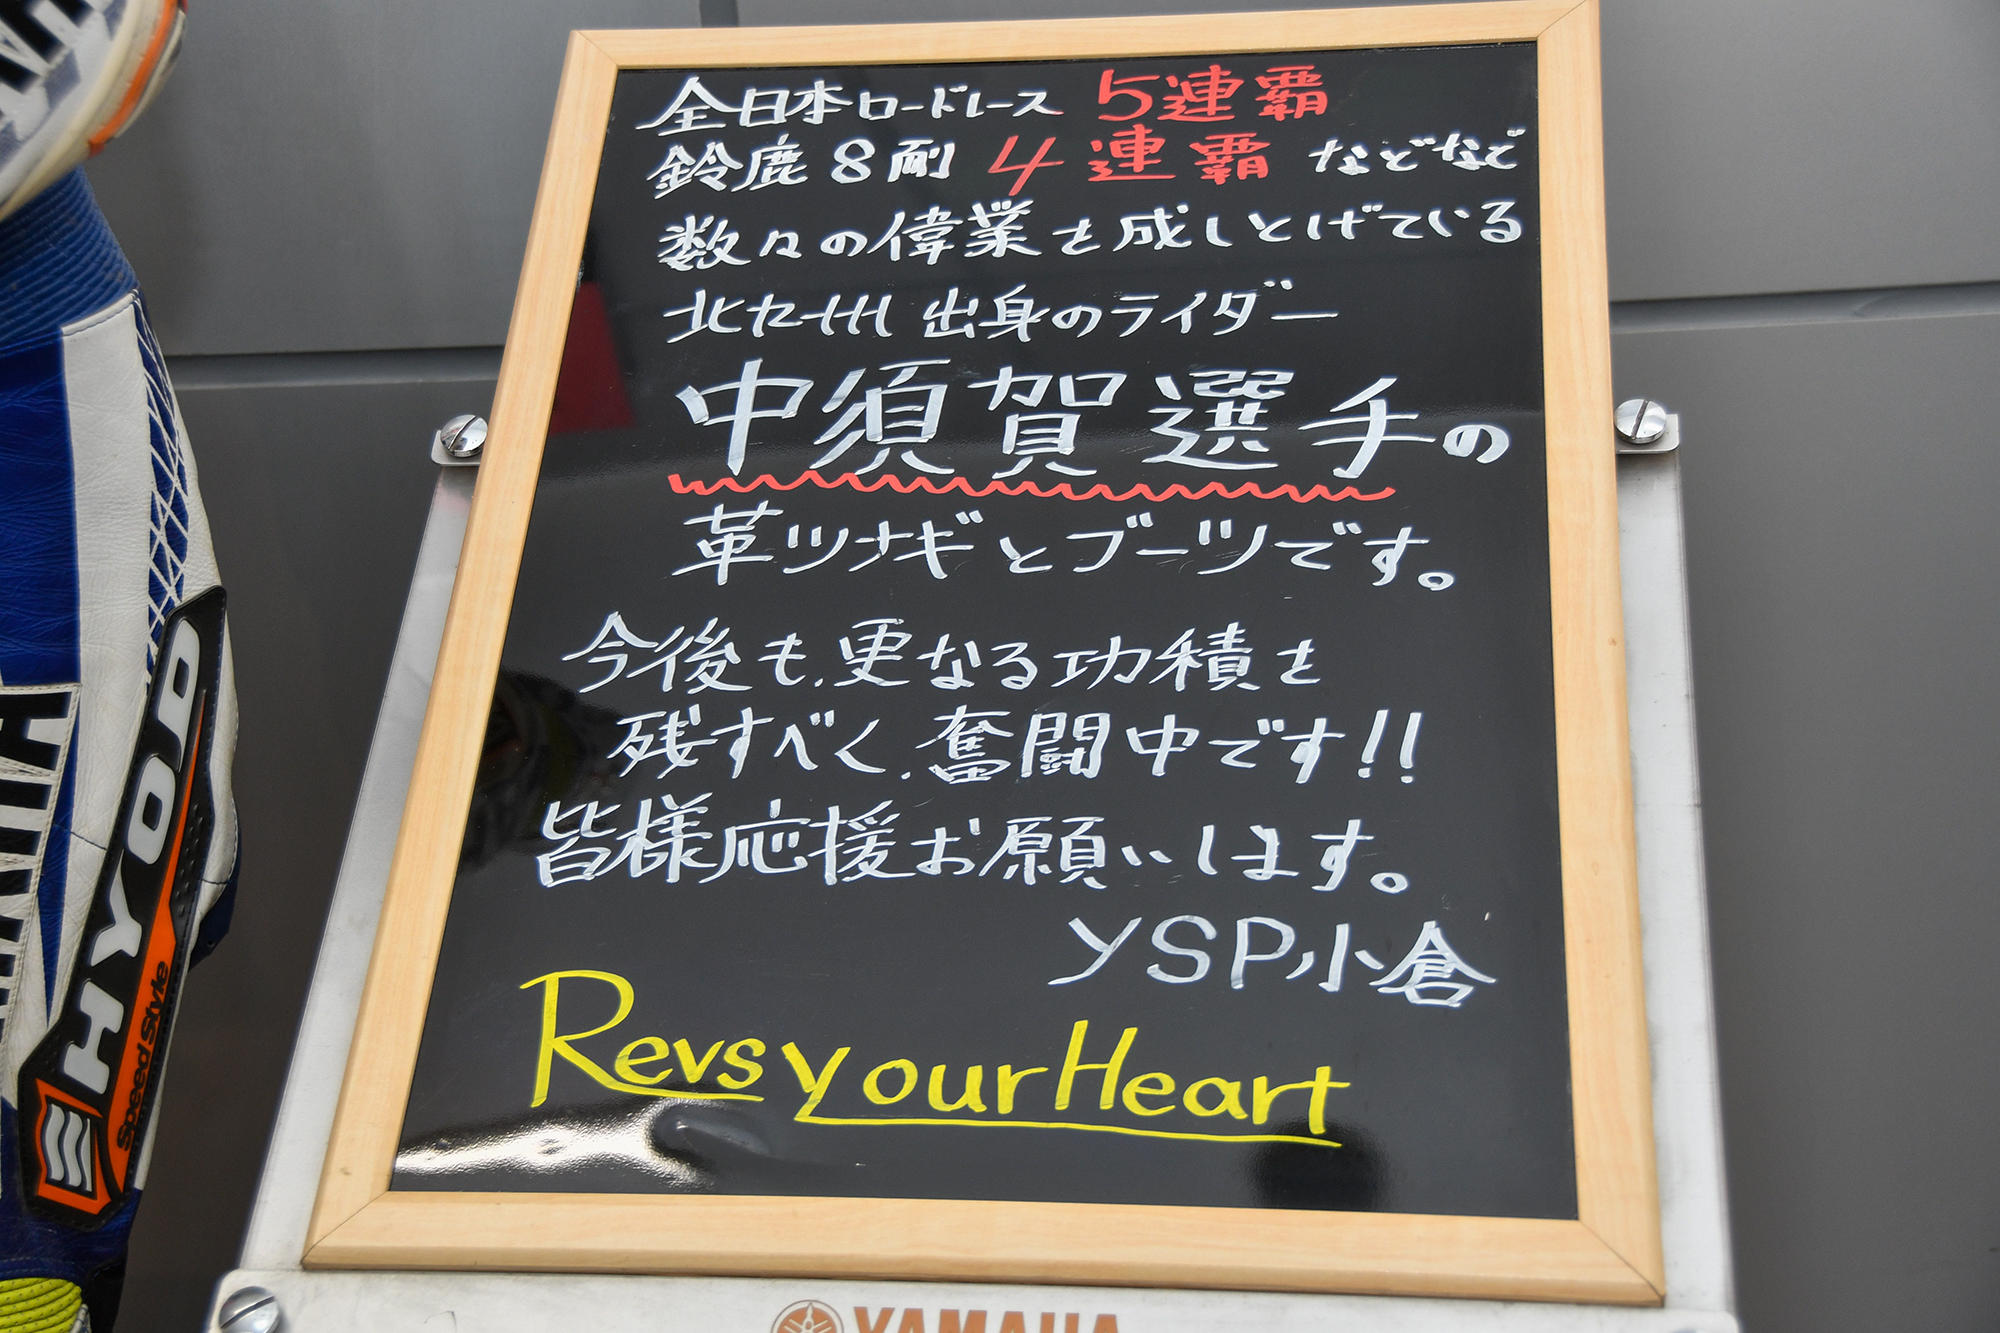 全日本ロードレース 5連覇
鈴鹿8耐 4連覇 などなど
数々の偉業を成しとげている
北九州出身のライダー
中須賀選手の
革ツナギとブーツです。
今後も、更なる功積を
残すべく、奮闘中です!!
皆様応援お願いします。
YSP小倉
Revs your Heart
YAMAHA
HYOD
Speed Style